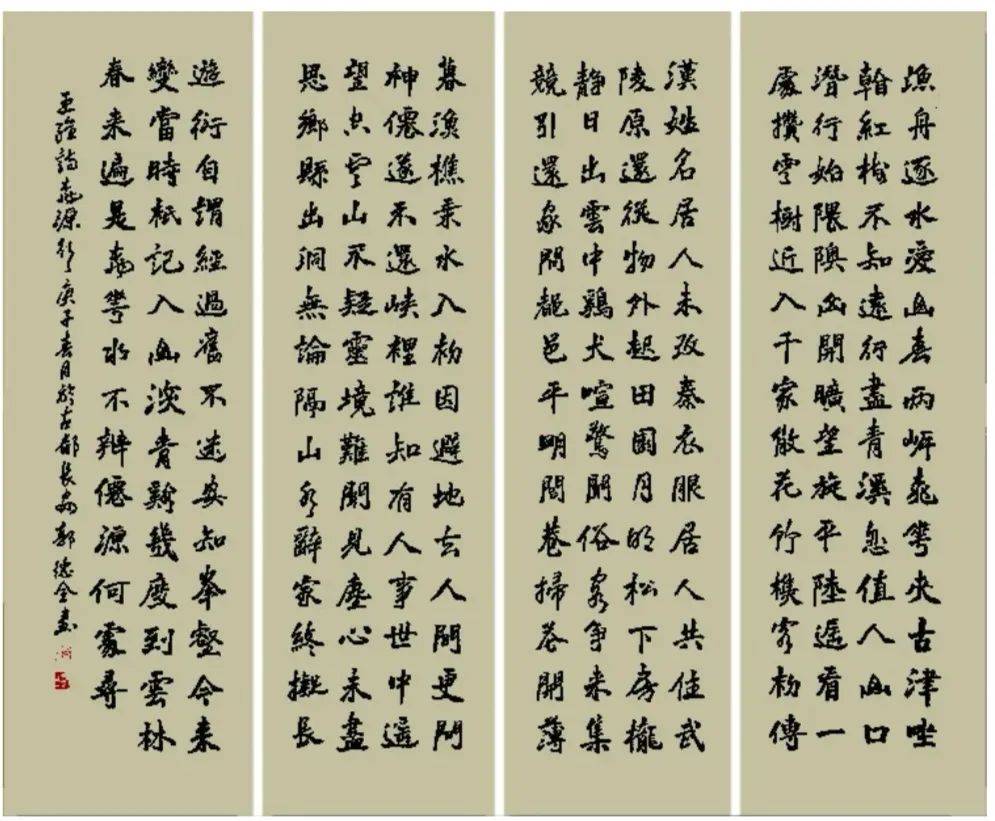 漁舟逐水愛山春兩岸桃華夾古津坐
看紅樹不知遠行盡青溪忽值人山口
潛行始隈隩山開曠望旋平陸遥看一
處攢雲樹近入千家散花竹樵客初傳
漢姓名居人未改秦衣服居人共住武
陵原還從物外起田園月明松下房櫳
靜日出雲中鷄犬喧驚聞俗客爭來集
競引還家問都邑平明閭巷掃花開薄
暮漁樵乘水入初因避地去人間更問
神僊遂不還峽裡誰知有人事世中遥
望空雲山不疑靈境難聞見塵心未盡
思鄉縣出洞無論隔山水辭家終擬長
遊衍自謂經過舊不迷安知峯壑今来
變當時衹記入山深青谿幾度到雲林
春来遍是桃華水不辨僊源何處尋
王維詩桃源行庚子春月於古都長安郭德全書